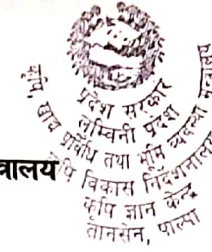 प्रदेश सरकार
लुम्बिनी प्रदेश
कृषि, खाद्य प्रविधि तथा भूमि व्यवस्था मन्त्रालय
कृषि विकास निर्देशनालय
कृषि ज्ञान केन्द्र
तानसेन, पाल्पा
त्रालय